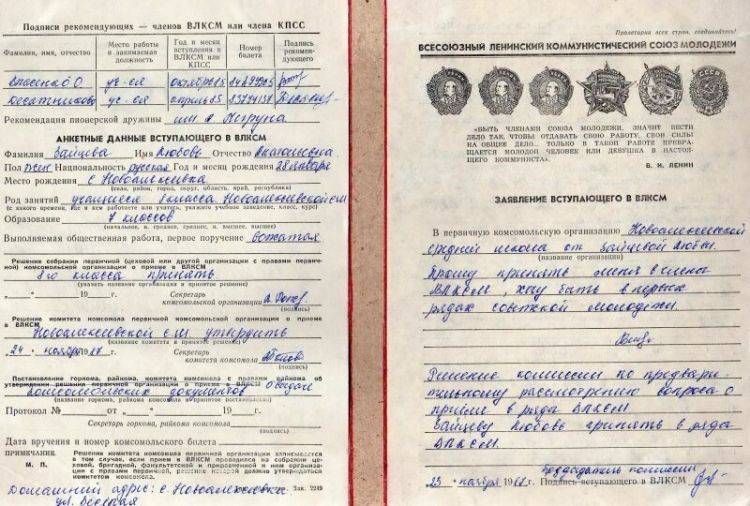 Подписи рекомендующих — членов ВЛКСМ или члена КПСС
Фамилия, имя, отчество
Место работы и занимаемая должность
Год и месяц вступления в ВЛКСМ или КПСС
Номер билета
Подпись рекомендующего
уч-ся октябрь 85
уч-ся апрель 85
Рекомендация пионерской дружины им
АНКЕТНЫЕ ДАННЫЕ ВСТУПАЮЩЕГО В ВЛКСМ
Фамилия Зайцева Имя Любовь Отчество Анатольевна
Пол жен Национальность русская Год и месяц рождения 28 января
Место рождения с Новоалексеевка
(село, район, город, округ, область, край, республика)
Род занятий учащаяся 8 класса Новоалексеевской сш
Образование 7 классов
(начальное, н. среднее, среднее, н. высшее, высшее)
Выполняемая общественная работа, первое поручение вожатая
Решение собрания первичной (цеховой или другой организации с правами первичной) комсомольской организации о приеме в ВЛКСМ
8го класса принять
(указать название организации и принятое решение)
„ “ 19 г. Секретарь
комсомольской организации
(подпись)
Решение комитета комсомола первичной комсомольской организации о приеме
в ВЛКСМ Новоалексеевской сш утвердить
(название комитета и принятое решение)
24 ноября 19 г. Секретарь
комитета комсомола
(подпись)
Постановление горкома, райкома, комитета комсомола с правами райкома об
утверждении решения первичной организации о приеме в ВЛКСМ О выдаче
комсомольских документов
(название горкома, райкома, комитета и принятое постановление)
Протокол № от „ “ 19 г.
Секретарь горкома, райкома комсомола
(подпись)
Дата вручения и номер комсомольского билета
ПРИМЕЧАНИЕ.
М. П.
Решение комитета комсомола первичной организации записывается в том случае, если прием в ВЛКСМ проводился на собрании цеховой, бригадной, факультетской и приравненной к ним организации с правами первичной, решение которой должно утверждаться комитетом комсомола.
Домашний адрес: с. Новоалексеевка
Зак. 2249
ул.
Пролетарии всех стран, соединяйтесь!
ВСЕСОЮЗНЫЙ ЛЕНИНСКИЙ КОММУНИСТИЧЕСКИЙ СОЮЗ МОЛОДЕЖИ
«БЫТЬ ЧЛЕНАМИ СОЮЗА МОЛОДЕЖИ, ЗНАЧИТ ВЕСТИ
ДЕЛО ТАК, ЧТОБЫ ОТДАВАТЬ СВОЮ РАБОТУ, СВОИ СИЛЫ
НА ОБЩЕЕ ДЕЛО... ТОЛЬКО В ТАКОЙ РАБОТЕ ПРЕВРА-
ЩАЕТСЯ МОЛОДОЙ ЧЕЛОВЕК ИЛИ ДЕВУШКА В НАСТОЯ-
ЩЕГО КОММУНИСТА».
В. И. ЛЕНИН
ЗАЯВЛЕНИЕ ВСТУПАЮЩЕГО В ВЛКСМ
В первичную комсомольскую организацию Новоалексеевской
средней школы от Зайцевой Любы.
(название организации)
Прошу принять меня в члены
ВЛКСМ, хочу быть в первых
рядах советской молодежи.
Решение комиссии по предвари
тельному рассмотрению вопроса о
приеме в ряды ВЛКСМ
Зайцеву Любовь принять в ряды
ВЛКСМ.
Председатель комиссии
23 ноября 19 г. Подпись вступающего в ВЛКСМ